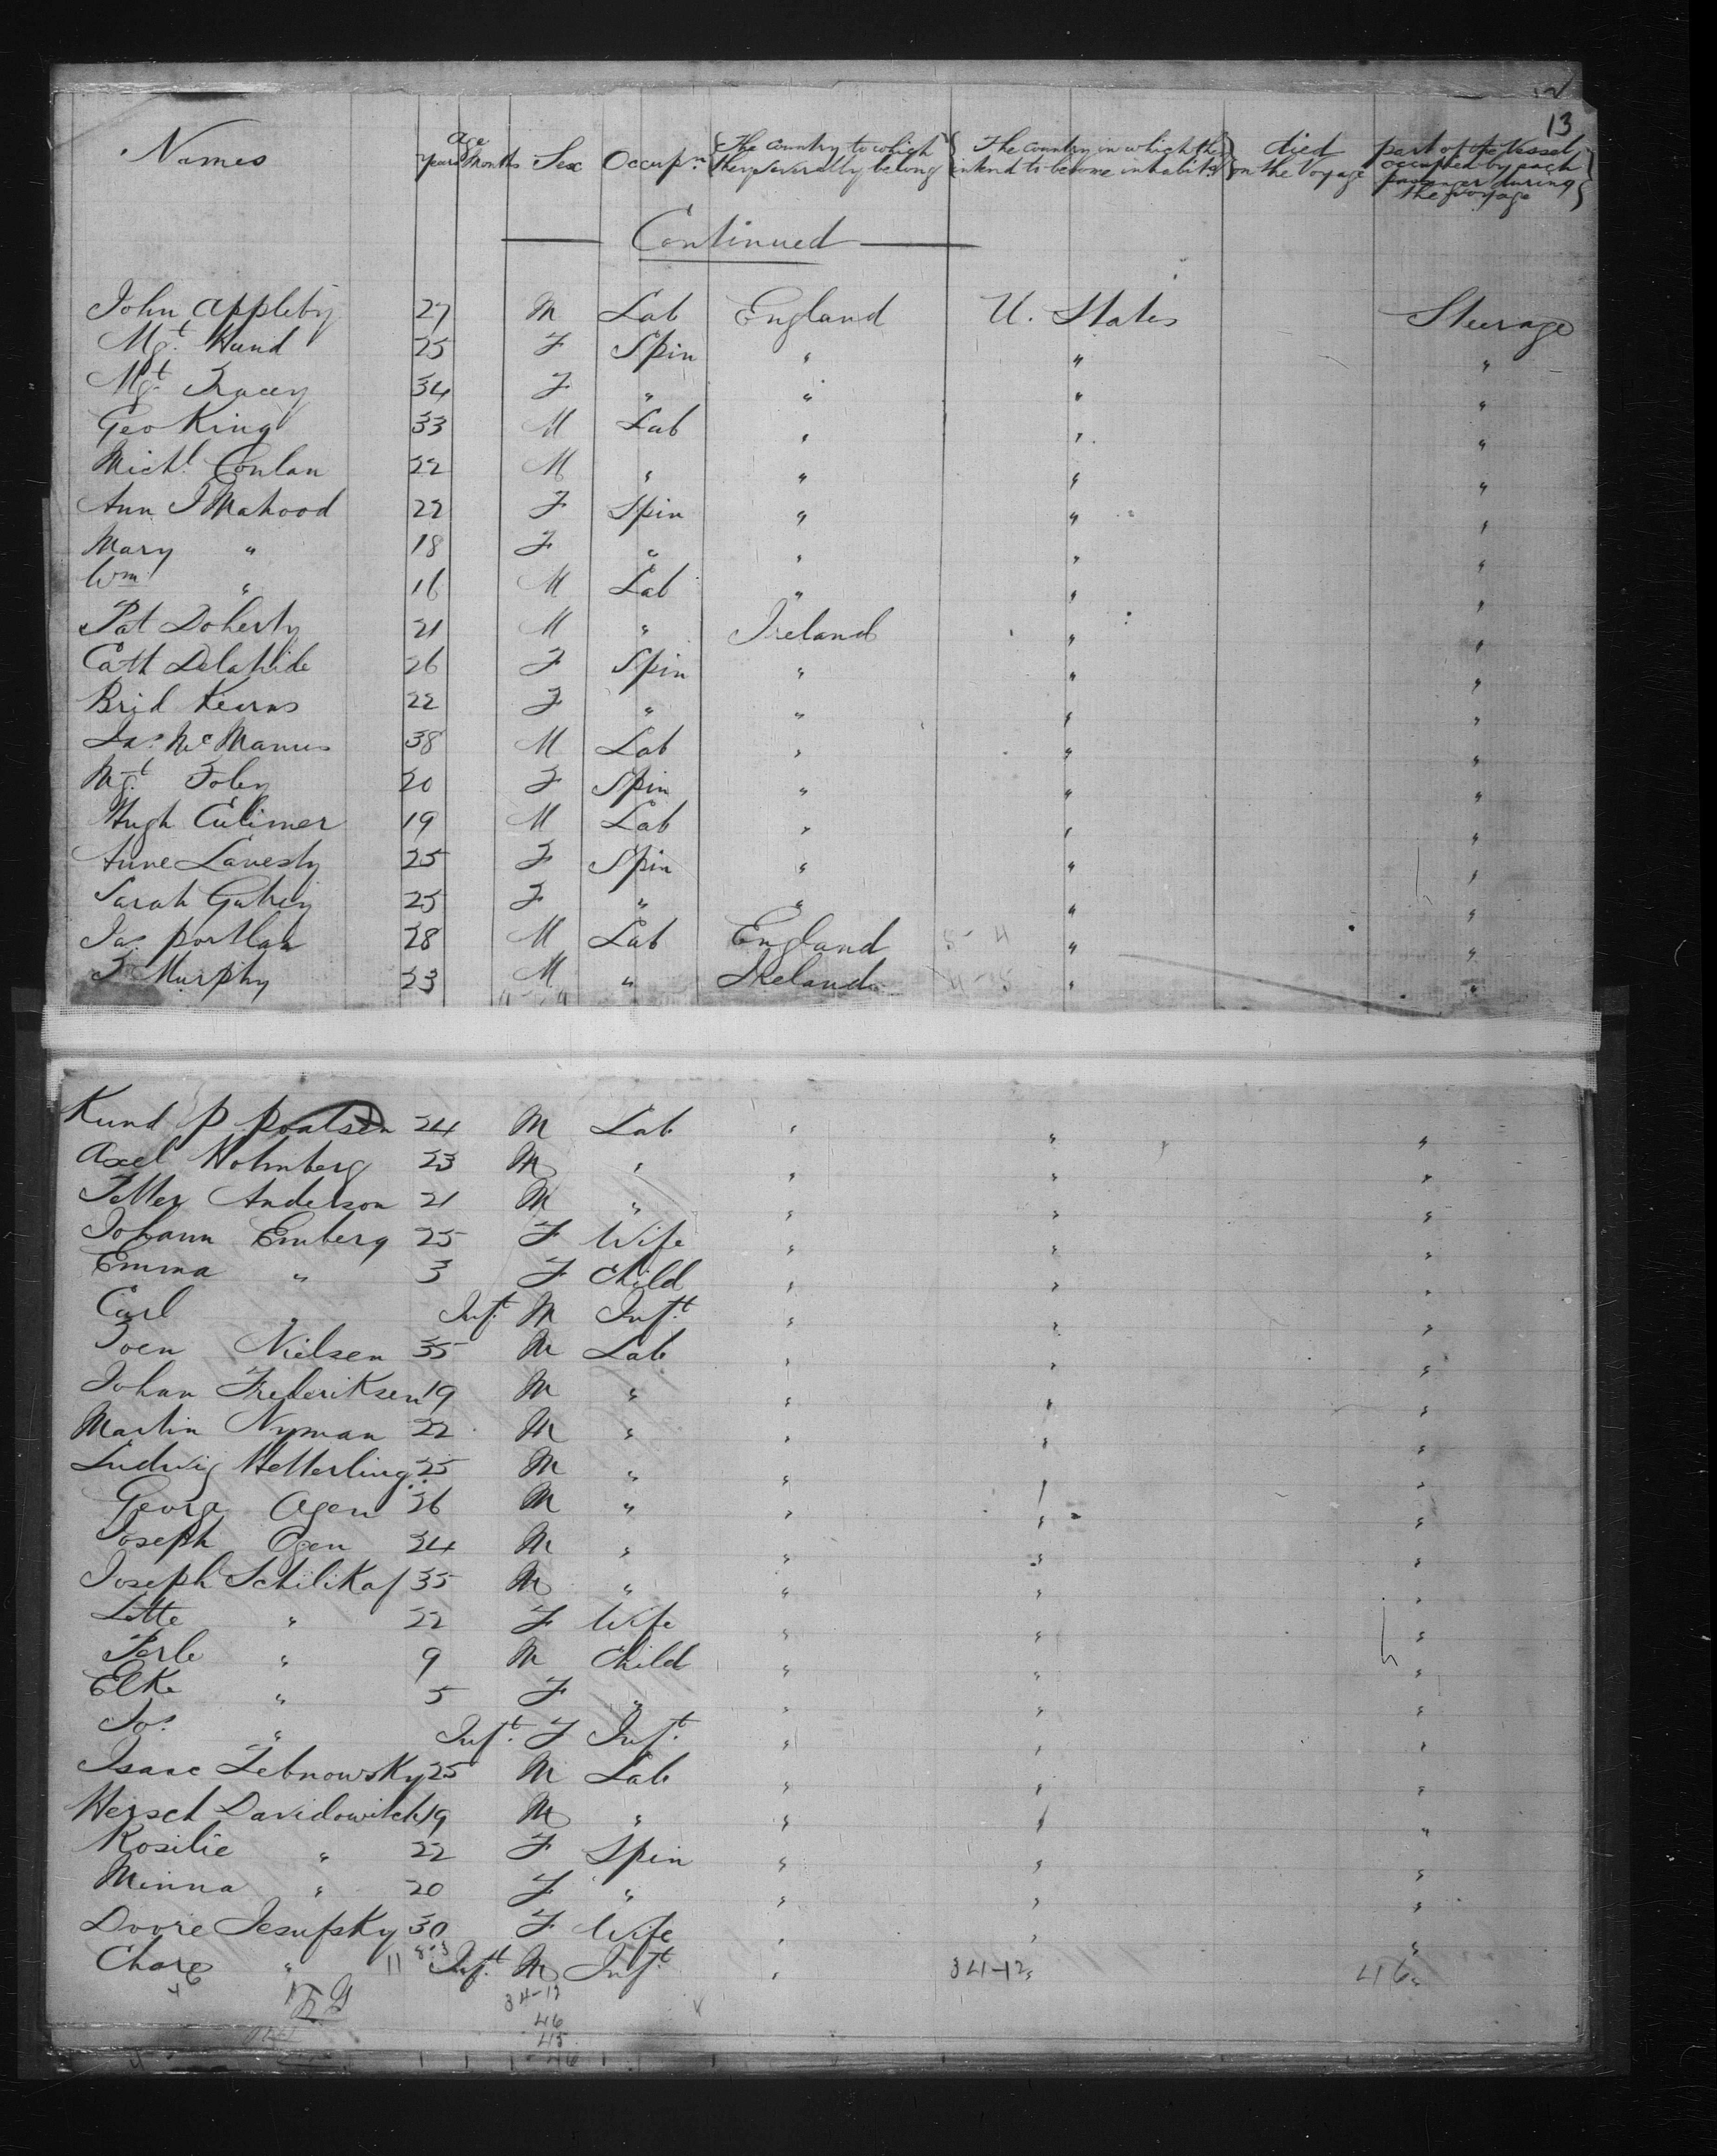 13
Names Age years Months Sex Occupn. {The Country to which they severally belong} {The Country in which they intend to become inhabits} died on the Voyage part of the Vessel occupied by each passenger during the voyage}
Continued
John Appleby 27 M Lab England U. States Steerage
Mgt. Hand 25 F Spin " " "
Mgt. Tracey 34 F " " " "
Geo King 33 M Lab " " "
Michl. Conlan 22 M " " " "
Ann J Mahood 22 F Spin " " "
Mary " 18 F " " " "
Wm. " 16 M Lab " " "
Pat Doherty 21 M " Ireland " "
Cath Delahide 26 F Spin " " "
Brid Kearns 22 F " " " "
Jas. McManus 38 M Lab " " "
Mgt. Foley 20 F Spin " " "
Hugh Culimer 19 M Lab " " "
Anne Lavesty 25 F Spin " " "
Sarah 25 F " " " "
Jas. portlan 28 M Lab England " "
Murphy 23 M " Ireland " "
Kund P poalsen 24 M Lab " " "
Axel Holmberg 23 M " " " "
Petter Anderson 21 M " " " "
Johann Emberg 25 F Wife " " "
Emma " 3 F Child " " "
Carl " Inft. M Inft. " " "
Joen Nielsen 35 M Lab " " "
Johan Frederiksen 19 M " " " "
Martin Nyman 22 M " " " "
Ludwig Hetterling 25 M " " " "
Georg Agen 26 M " " " "
Joseph Ogen 24 M " " " "
Joseph Schilikaf 35 M " " " "
Lotte " 22 F Wife " " "
Perle " 9 M Child " " "
Elke " 5 F " " " "
Jos. " Inft. F Inft. " " "
Isaac Zebnowsky 25 M Lab " " "
Hersch Davidowitch 19 M " " " "
Rosilie " 22 F Spin " " "
Minna " 20 F " " " "
Doore Jesufsky 30 F Wife " " "
Chare " 11 Inft. M Inft. " 34-12 " 46 "
34-12
46
45
46